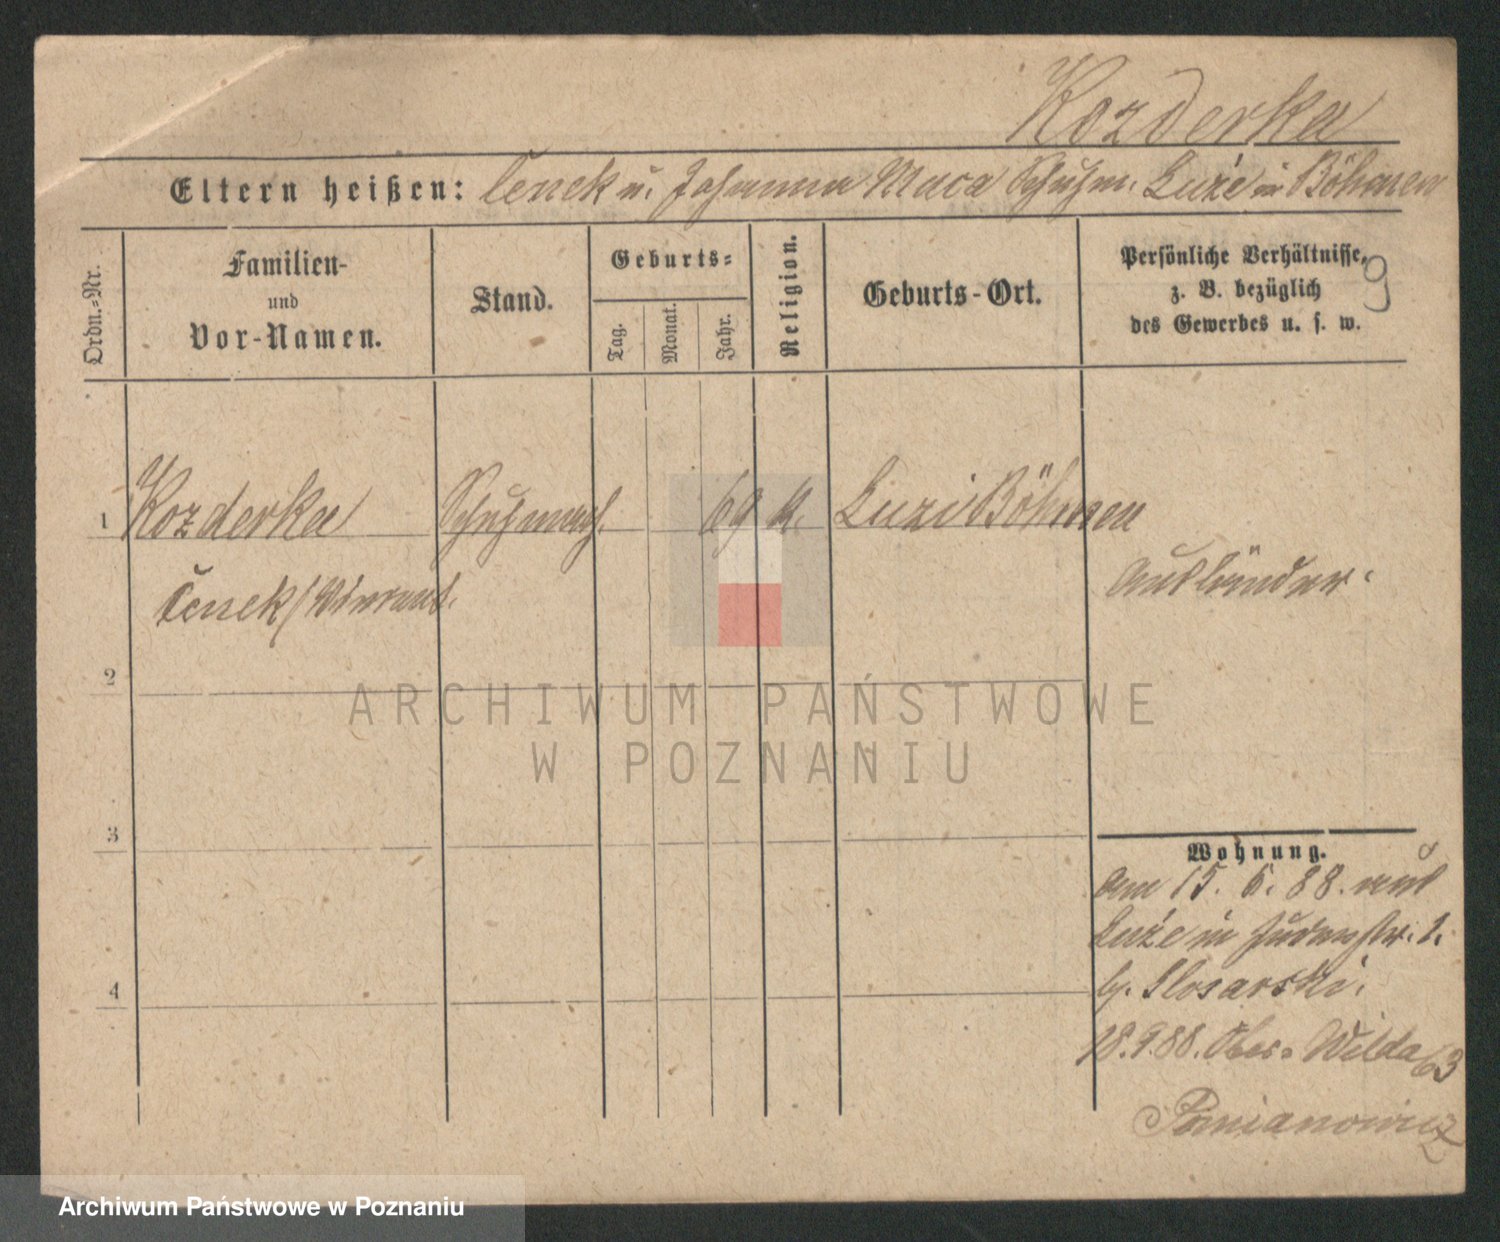 Kozderka
Eltern heißen: Čenek u. Johanna Maca Schuhm. Luže in Böhmen
Ordn.-Nr.
Familien-
und
Vor-Namen.
Stand.
Geburts-
Tag.
Monat.
Jahr.
Religion.
Geburts-Ort.
Persönliche Verhältnisse,
z. B. bezüglich
des Gewerbes u. s. w.
9
1 Kozderka Schuhmach. 69 k. Luzi Böhmen
Čenek/Vincent.
Ausländer.
2
3
4
Wohnung.
Am 15. 6. 88. aus
Luže in Judenstr. 1.
b. Slosarski.
18.9.88. Ober-Wilda 63
Pomianowicz
ARCHIWUM PAŃSTWOWE
W POZNANIU
Archiwum Państwowe w Poznaniu